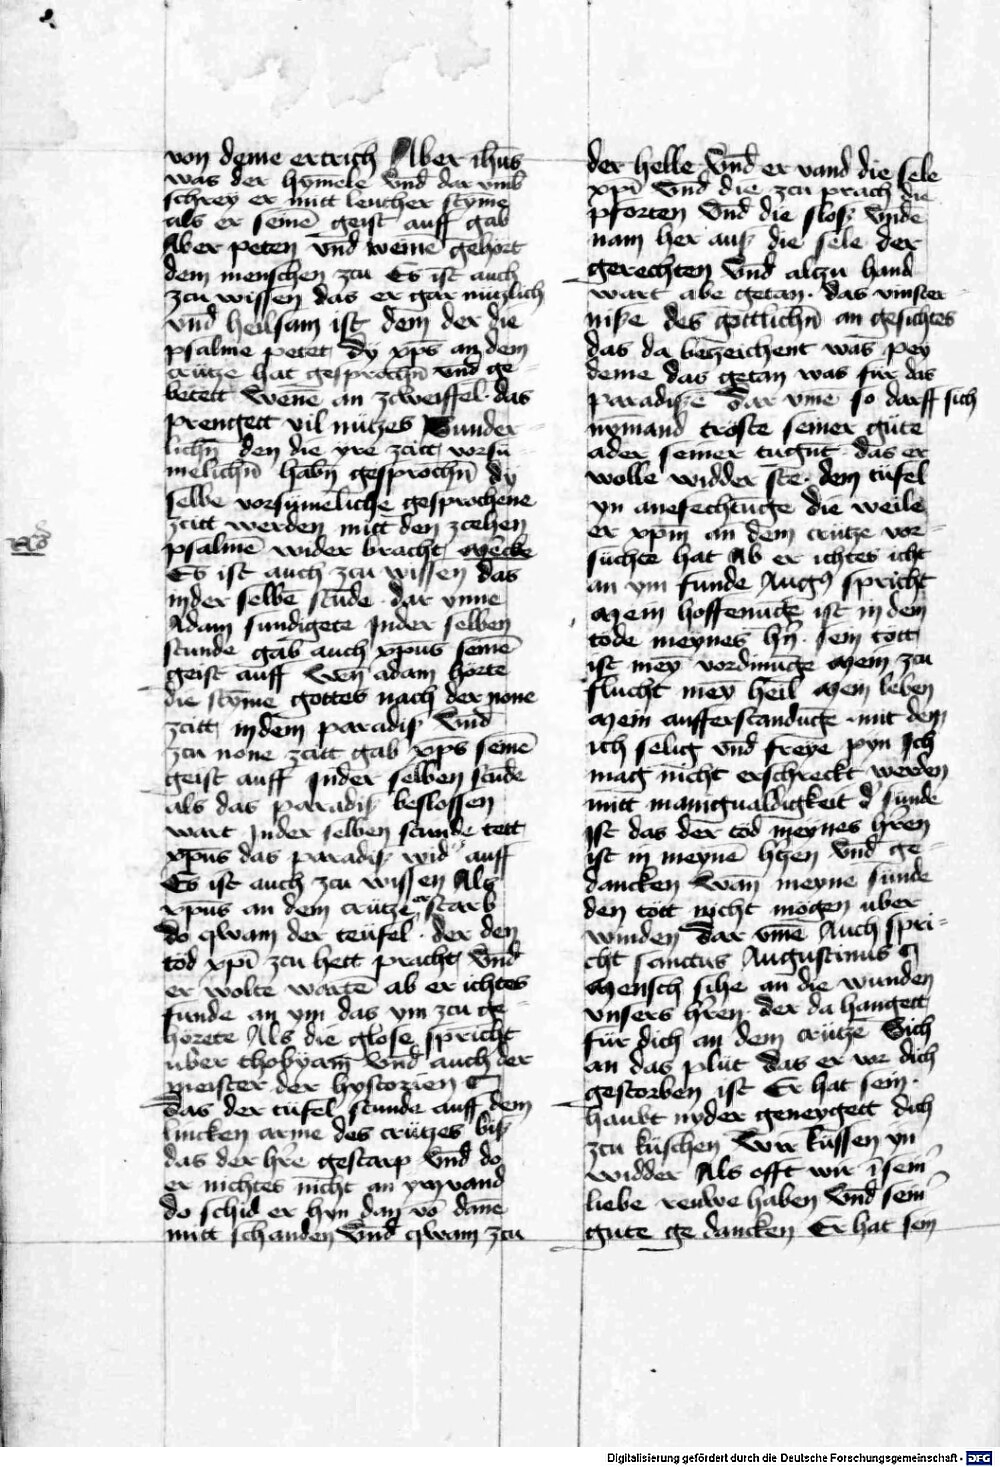 von deme ertrich Aber ihūs
was der hymele Vnd dar vmb
schrey er mitt leuther styme
als er seinē geist auff gab
Aber peten vnd weine gehort
dem menschen zcu Es ist auch
zcu wissen das er gar nutzlich
vnd heilsam ist dem der die
psalme petet dy xp̄s an dem
crütze hat gesprochn̄ vnd ge-
betett Wene an zcweiffel das
prengett vil nutzes Sunder-
lichn̄ den die yre zcitt vorsu-
melichn̄ habn̄ gesprochn̄ dy
selbe vorsumeliche gesprochene
zcitt werden mitt den zcehen
psalmē wider bracht Mercke
Es ist auch zcu wissen das
inder selbē stūde dar ynne
Adam sundigete Inder selben
stunde gab auch xpūs seinē
geist auff Wen adam horte
die styme gottes nach der none
zcitt indem paradiß Vnd
zcu none zcitt gab xp̄s seinē
geist auff Inder selben stūde
als das paradiß beslossen
wart Inder selben stunde tett
xpūs das paradiß wid' auff
Es ist auch zcu wissen Als
xpūs an dem crütze er starb
do qwam der teüfel der den
tod xpī zcu hett pracht Vnd
er wolte warte ab er ichtes
funde an ym das ym zcu ge-
hörete Als die glose spricht
uber thobyam Vnd auch der
meister der hystorien
das der tüfel stunde auff dem
lincken arme des crützes biß
das der hr̄e gestarp Vnd do
er nichtes nicht an ym vand
do schid er hyn dan vō danē
mitt schanden Vnd qwam zcu
der helle Vnd er vand die sele
xpī Vnd die zcu prach die
pforten Vnd die sloß Vnde
nam her auß die sele der
gerechten Vnd altzu hand
wart abe getan das vinster-
niße des gottlichn̄ an gesichtes
das da bezeichent was pey
deme das getan was für das
paradiße Dar vme so darff sich
nymand tröste seiner güte
ader seiner tugūt das er
wolle widder ste dem tüfel
yn anefechtūge die weile
er xpm̄ an dem crütze vor-
süchte hat Ab er ichtes icht
an ym funde Aug9 spricht
Mein hoffenūge ist in dem
tode meynes hn̄ sein tott
ist mey vordinūge Mein zcu
flucht mey heil Mein leben
Mein aufferstandūge mit dem
ich selig vnd freye pyn Ich
mag nicht erschreckt werden
mitt manigualdigkeit d' sunde
Ist das der tod meynes hr̄en
ist in meynē htzen Vnd ge-
dancken Wan meyne sunde
den tött nicht mögen uber
winden Dar vme Auch spri-
cht sanctus Augustinus
Mensch sihe an die wunden
vnsers hr̄en der da hangett
für dich an dem crütze Sich
an das plüt das er vor dich
gestorben ist Er hat sein
haubt nyder geneygett dich
zcu küschen Wir küssen yn
widder Als offt wir ī sein'
liebe reuwe haben Vnd sein'
gute ge dancken Er hat sein